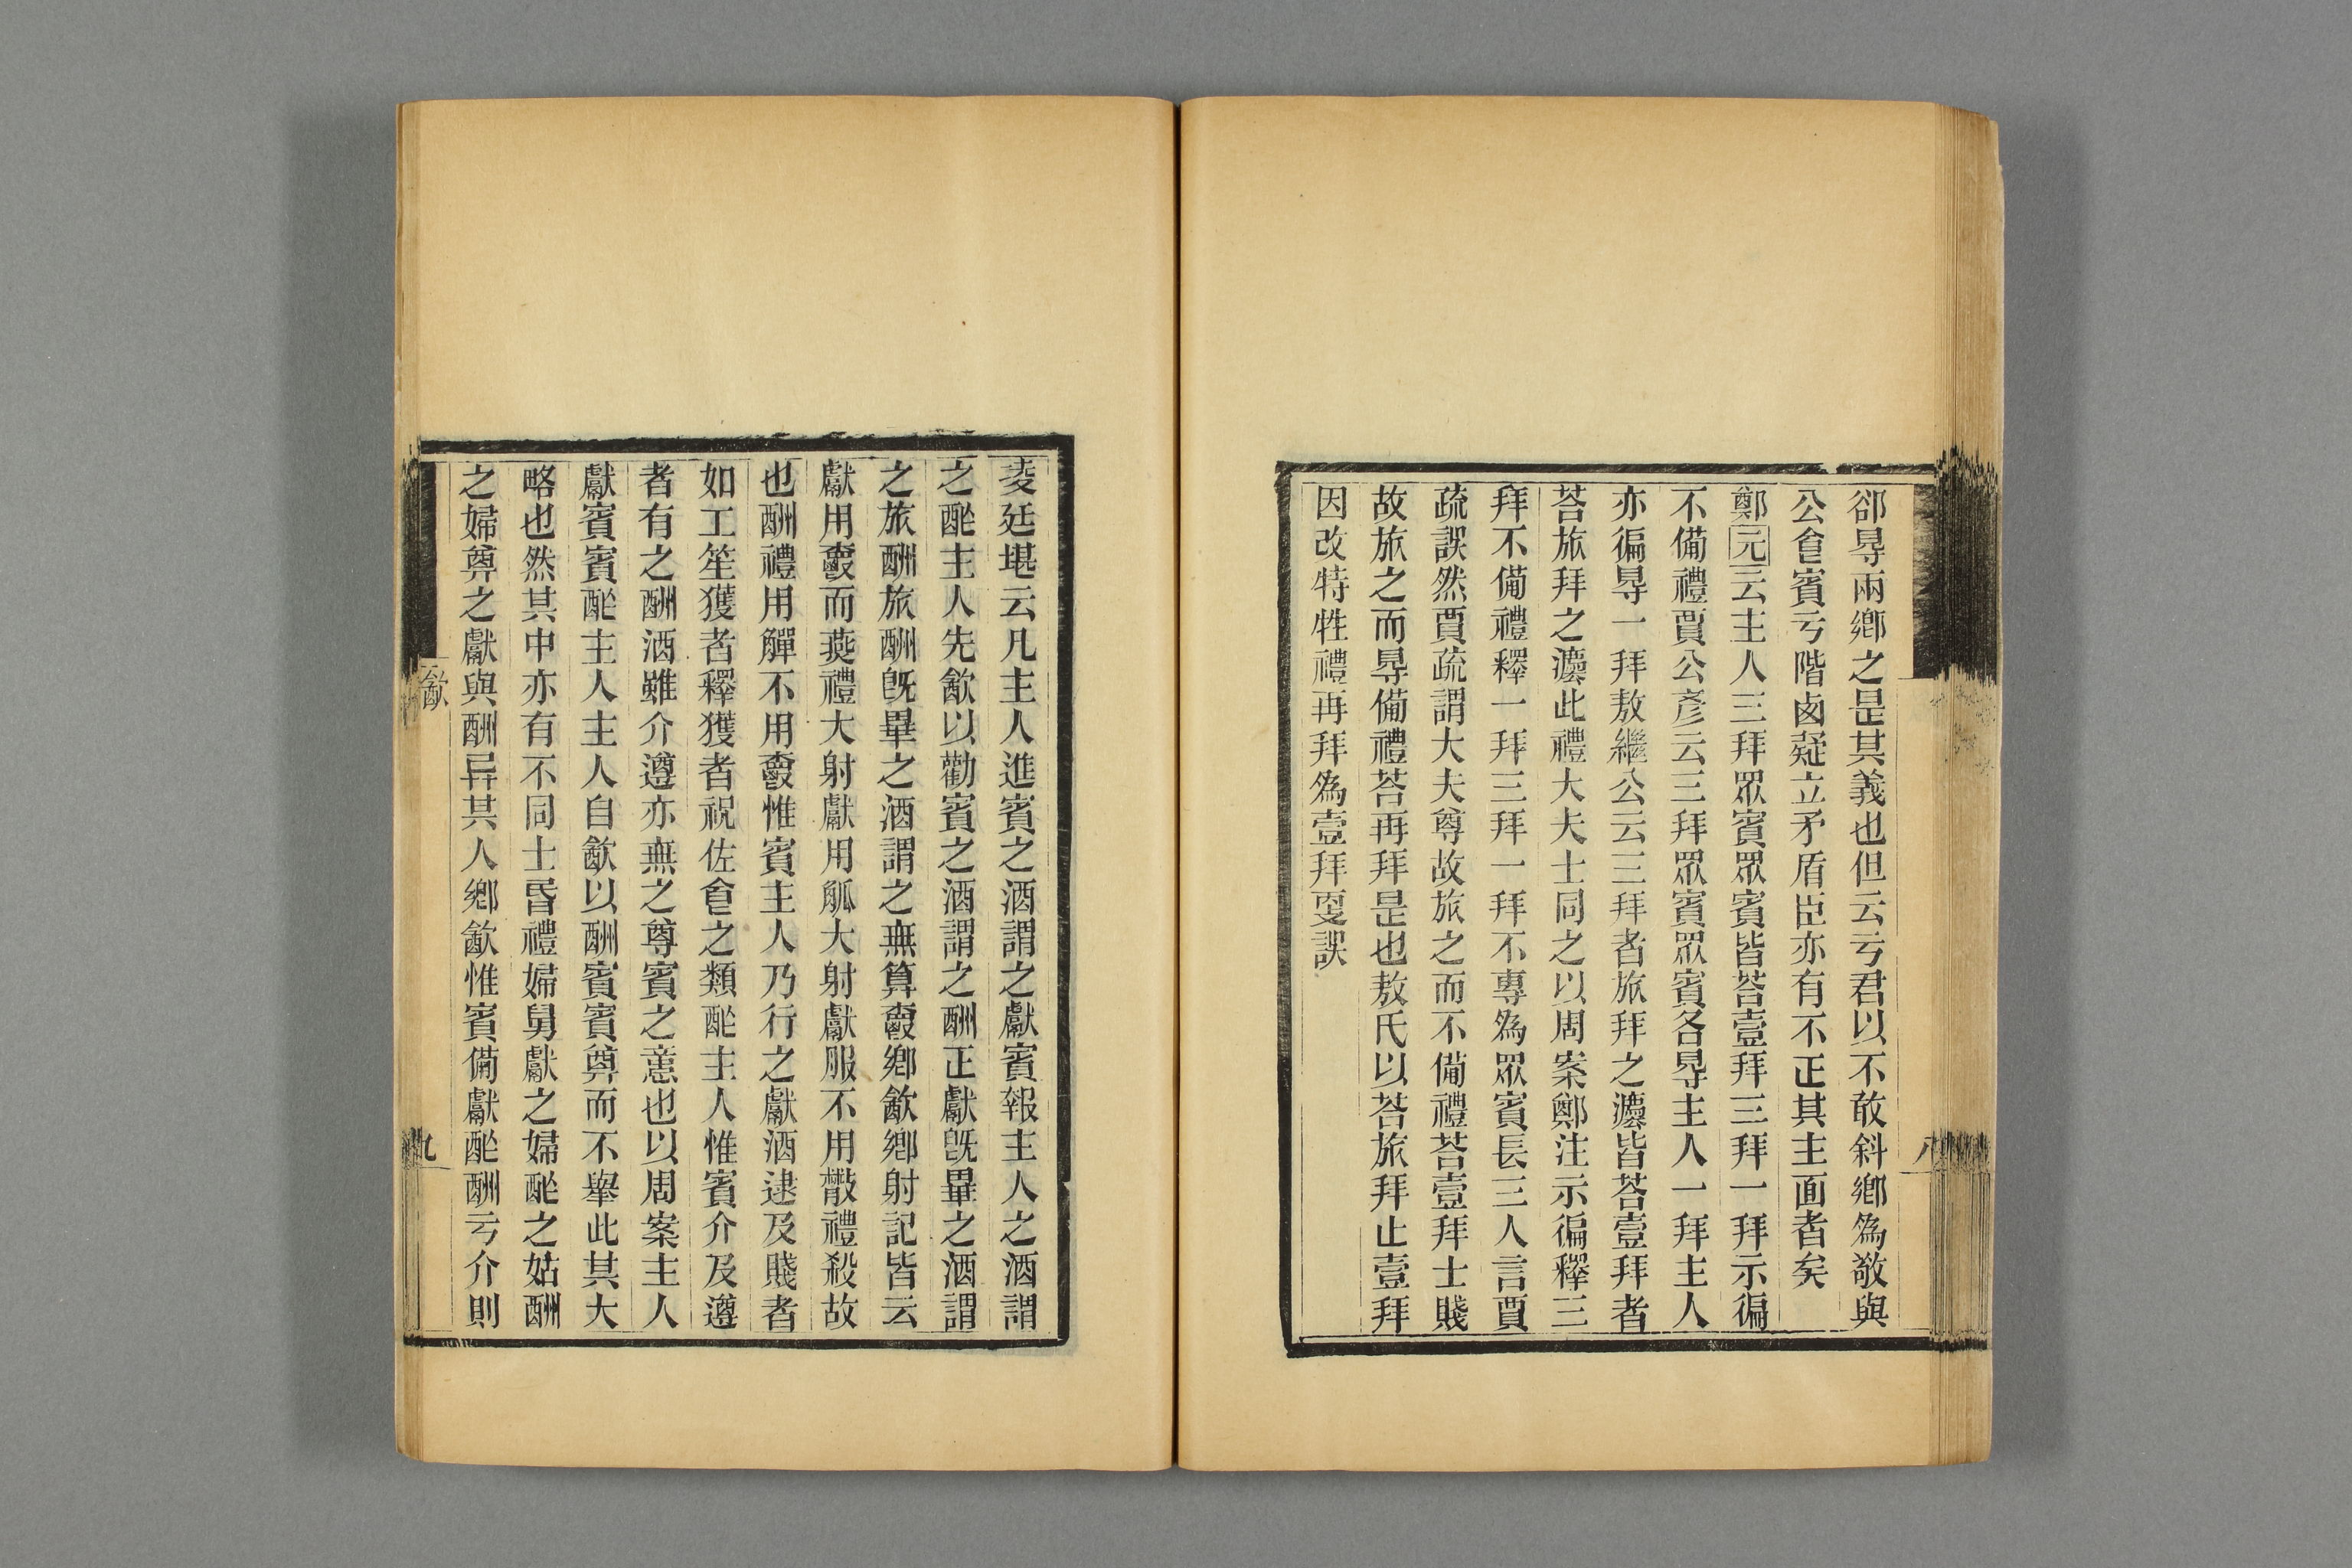 郤㝵兩鄉之是其義也但云亏君以不敢斜鄉為敬與
公㑹賓亏階卤疑立矛盾臣亦有不正其主面者矣
鄭元云主人三拜眾賓眾賓皆荅壹拜三拜一拜示徧
不備禮賈公彥云三拜眾賓眾賓各㝵主人一拜主人
亦徧㝵一拜敖繼公云三拜者旅拜之灋皆荅壹拜者
荅旅拜之灋此禮大夫士同之以周案鄭注示徧釋三
拜不備禮釋一拜三拜一拜不專為眾賓長三人言賈
疏誤然賈疏謂大夫尊故旅之而不備禮荅壹拜士賤
故旅之而㝵備禮荅再拜是也敖氏以荅旅拜止壹拜
因改特牲禮再拜為壹拜㪅誤
八
夌廷堪云凡主人進賓之酒謂之獻賓報主人之酒謂
之酢主人先㱃以勸賓之酒謂之酬正獻旣畢之酒謂
之旅酬旅酬旣畢之酒謂之無算爵鄉㱃鄉射記皆云
獻用爵而燕禮大射獻用觚大射獻服不用散禮殺故
也酬禮用觶不用爵惟賓主人乃行之獻酒逮及賤者
如工笙獲者釋獲者祝佐食之類酢主人惟賓介及遵
者有之酬酒雖介遵亦無之尊賓之意也以周案主人
獻賓賓酢主人主人自㱃以酬賓賓奠而不舉此其大
略也然其中亦有不同士昏禮婦舅獻之婦酢之姑酬
之婦奠之獻與酬异其人鄉㱃惟賓備獻酢酬亏介則
㱃
九